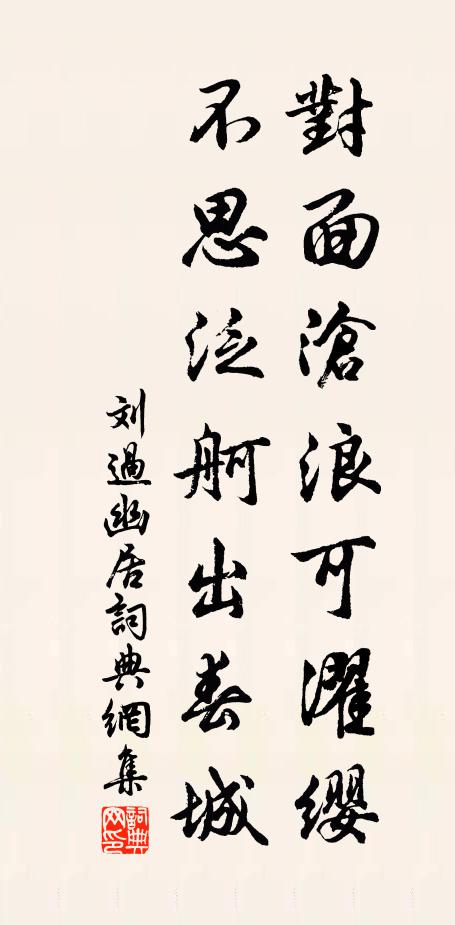 對面滄浪可濯纓
不思泛舸出春城
刘過幽居詞典網集
詞典網印